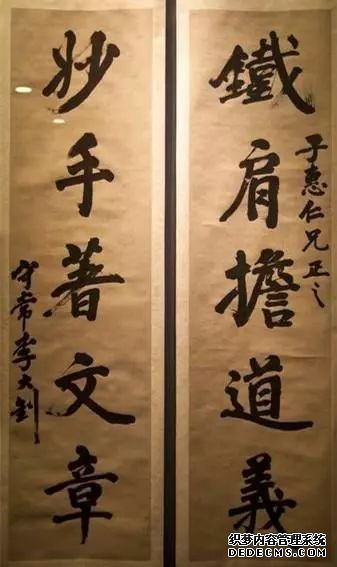 鐵肩擔道義
子惠仁兄正之
妙手著文章
守常李大釗
织梦内容管理系统
DEDECMS.COM